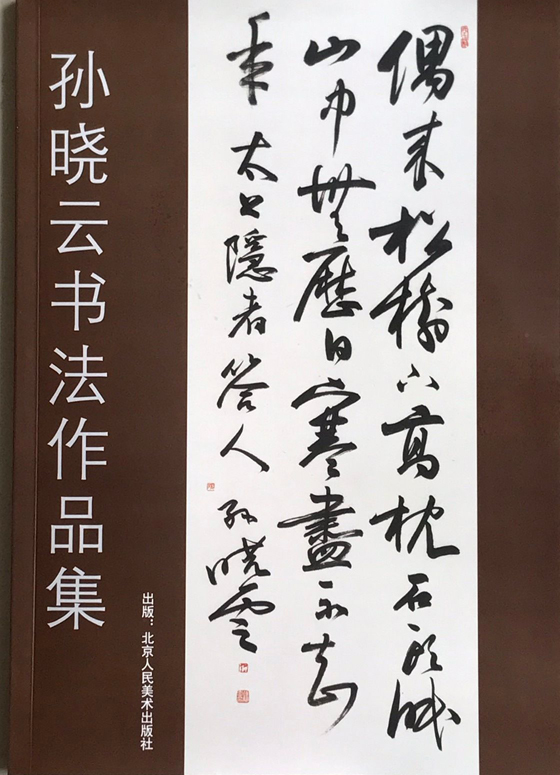 孙晓云书法作品集
偶来松树下高枕石头眠
山中無歷日寒盡不知
年 太上隱者答人 孙晓雲
出版：北京人民美术出版社